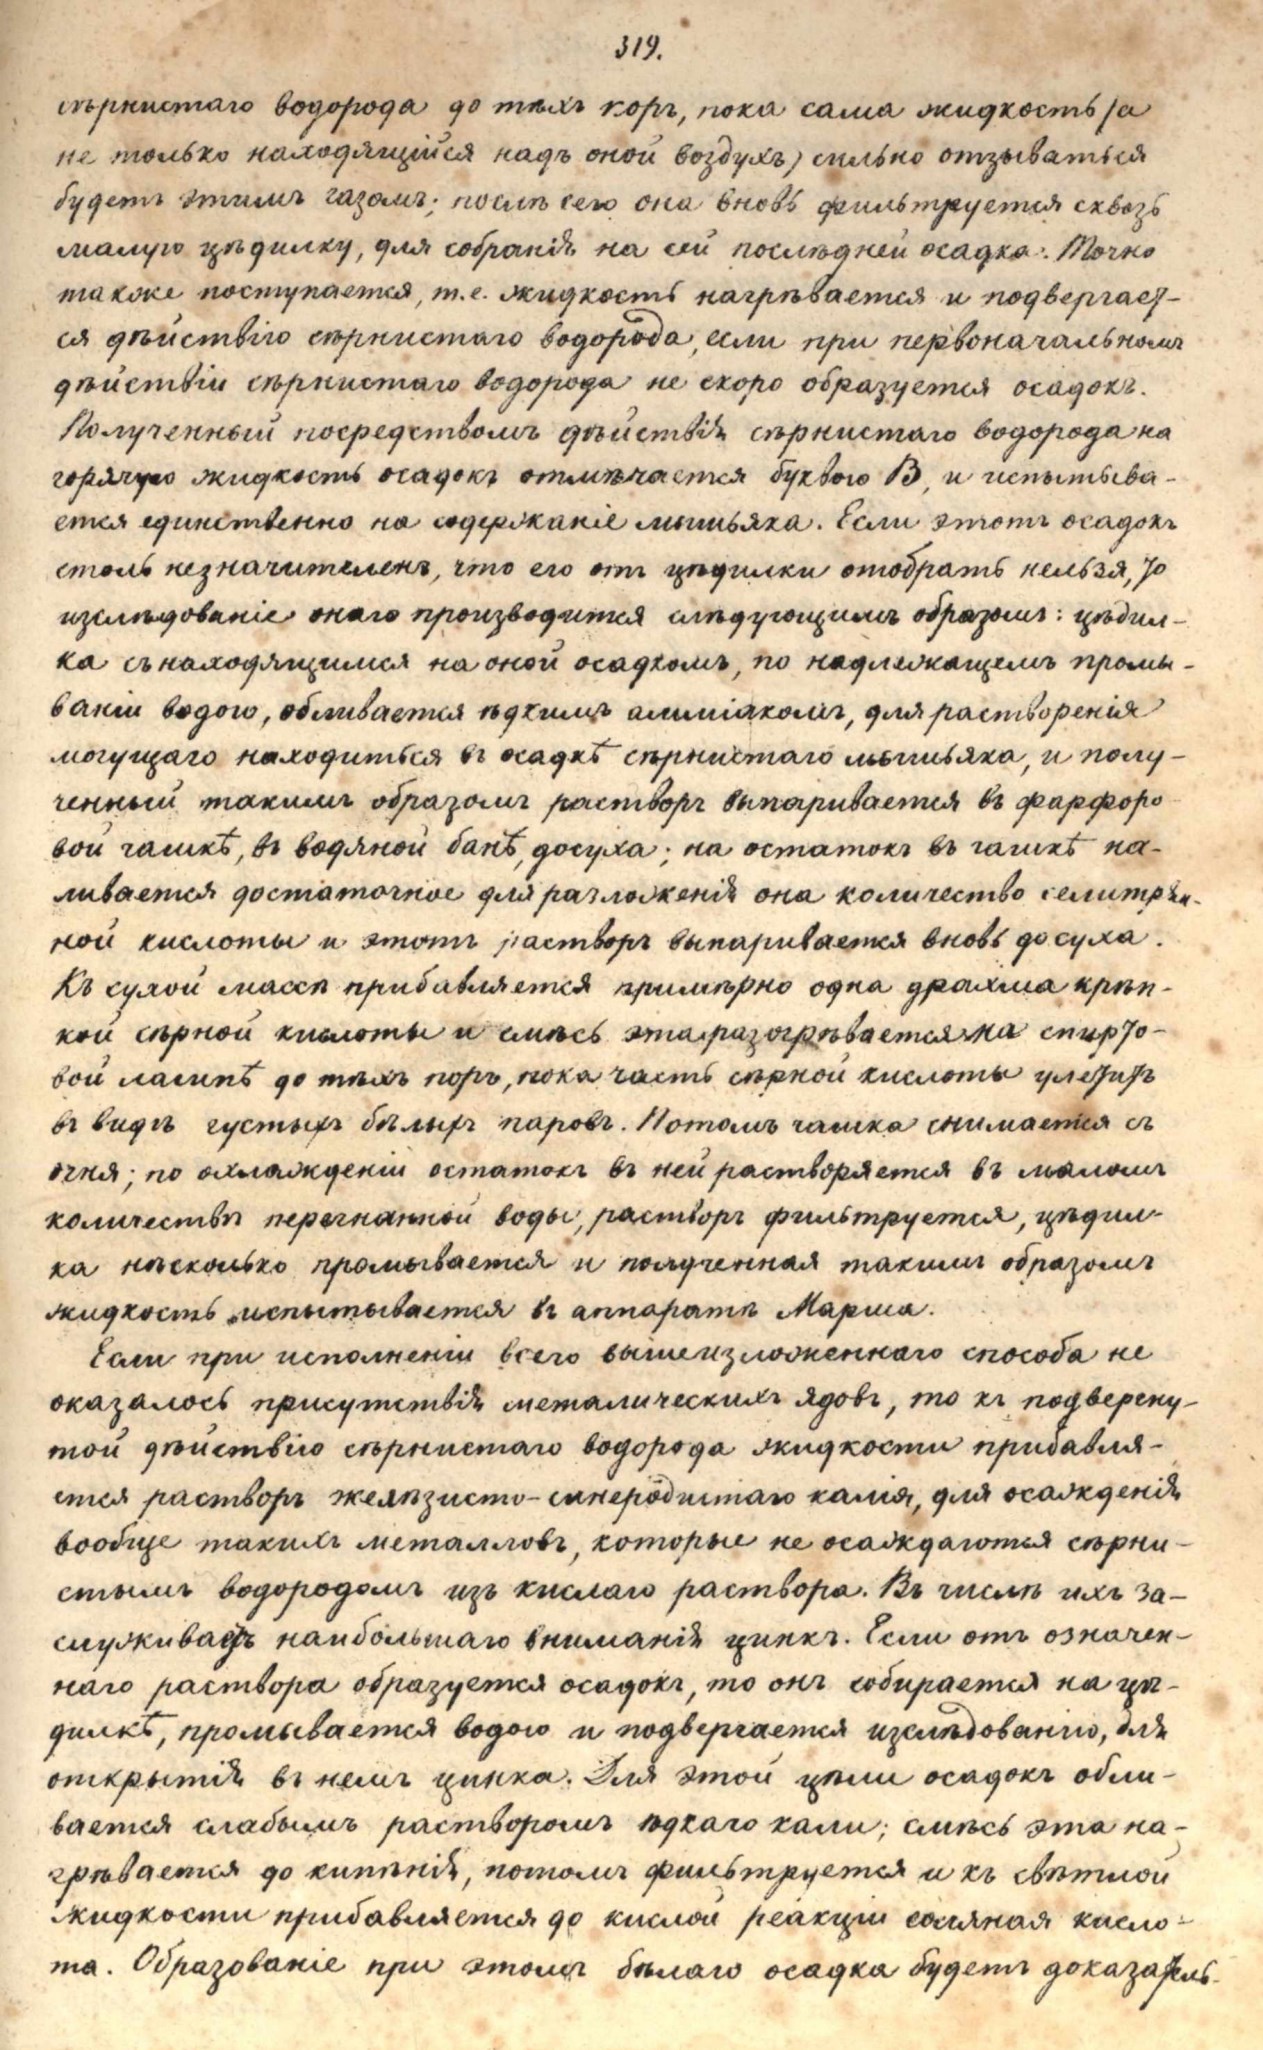 319.
сѣрнистаго водорода до тѣхъ поръ, пока сама жидкость /а
не только находящійся надъ оной воздухъ/ сильно отзываться
будетъ этимъ газомъ; послѣ сего она вновь фильтруется сквозь
малую цѣдилку, для собранія на сей послѣдней осадка. Точно
также поступается, т.е. жидкость нагрѣвается и подвергает-
ся дѣйствію сѣрнистаго водорода, если при первоначальномъ
дѣйствіи сѣрнистаго водорода не скоро образуется осадокъ.
Полученный посредствомъ дѣйствія сѣрнистаго водорода на
горячую жидкость осадокъ отмѣчается буквою В, и испытыва-
ется единственно на содержаніе мышьяка. Если этотъ осадокъ
столь незначителенъ, что его отъ цѣдилки отобрать нельзя, то
изслѣдованіе онаго производится слѣдующимъ образомъ: цѣдил-
ка съ находящимся на оной осадкомъ, по надлежащемъ промы-
ваніи водою, обливается ѣдкимъ амміакомъ, для растворенія
могущаго находиться въ осадкѣ сѣрнистаго мышьяка, и полу-
ченный такимъ образомъ растворъ выпаривается въ фарфоро-
вой чашкѣ, въ водяной банѣ, досуха; на остатокъ въ чашкѣ на-
ливается достаточное для разложенія она количество селитрян-
ной кислоты и этотъ растворъ выпаривается вновь досуха.
Къ сухой массѣ прибавляется примѣрно одна драхма крѣп-
кой сѣрной кислоты и смѣсь эта разогрѣвается на спирто-
вой лампѣ до тѣхъ поръ, пока часть сѣрной кислоты улетитъ
въ видѣ густыхъ бѣлыхъ паровъ. Потомъ чашка снимается съ
огня; по охлажденіи остатокъ въ ней растворяется въ маломъ
количествѣ перегнанной воды, растворъ фильтруется, цѣдил-
ка нѣсколько промывается и полученная такимъ образомъ
жидкость испытывается въ аппаратѣ Марша.
Если при исполненіи всего вышеизложеннаго способа не
оказалось присутствія металическихъ ядовъ, то къ подвергну-
той дѣйствію сѣрнистаго водорода жидкости прибавля-
ется растворъ желѣзисто-синеродистаго калія, для осажденія
вообще такихъ металловъ, которые не осаждаются сѣрни-
стымъ водородомъ изъ кислаго раствора. Въ числѣ ихъ за-
служиваетъ наибольшаго вниманія цинкъ. Если отъ означен-
наго раствора образуется осадокъ, то онъ собирается на цѣ-
дилкѣ, промывается водою и подвергается изслѣдованію, для
открытія въ немъ цинка. Для этой цѣли осадокъ обли-
вается слабымъ растворомъ ѣдкаго кали; смѣсь эта на-
грѣвается до кипѣнія, потомъ фильтруется и къ свѣтлой
жидкости прибавляется до кислой реакціи соляная кисло-
та. Образованіе при этомъ бѣлаго осадка будетъ доказатель-